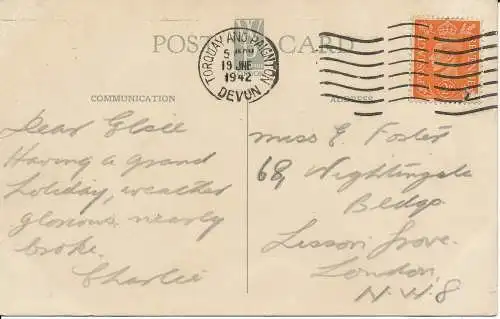 POST CARD
TORQUAY AND PAIGNTON
5
19 JNE
1942
DEVON
COMMUNICATION
ADDRESS
Dear Elsie
Having a grand
holiday, weather
glorious. nearly
broke.
Charlie
Miss E Foster
68, Nightingale
Bldgs
Lisson Grove.
London.
N.W.8